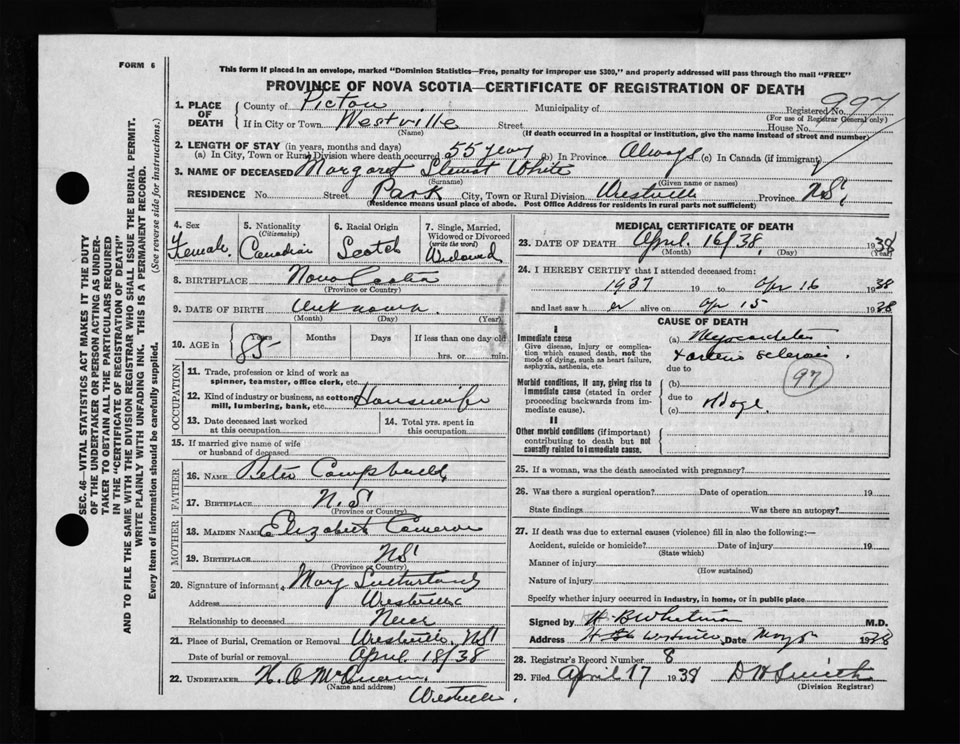 FORM 6
This form if placed in an envelope, marked "Dominion Statistics—Free, penalty for improper use $300," and properly addressed will pass through the mail "FREE"
PROVINCE OF NOVA SCOTIA—CERTIFICATE OF REGISTRATION OF DEATH
1. PLACE OF DEATH County of Pictou Municipality of Registered No. 997
(For use of Registrar General only)
If in City or Town Westville Street House No.
(Name) (If death occurred in a hospital or institution, give the name instead of street and number)
2. LENGTH OF STAY (in years, months and days)
(a) In City, Town or Rural Division where death occurred 55 years (b) In Province Always (c) In Canada (if immigrant)
3. NAME OF DECEASED Margaret Stewart White
(Surname) (Given name or names)
RESIDENCE No. Street Park City, Town or Rural Division Westville Province NS
(Residence means usual place of abode. Post Office Address for residents in rural parts not sufficient)
4. Sex Female
5. Nationality (Citizenship) Canadian
6. Racial Origin Scotch
7. Single, Married, Widowed or Divorced (write the word) Widowed
8. BIRTHPLACE Nova Scotia
(Province or Country)
9. DATE OF BIRTH Unknown
(Month) (Day) (Year)
10. AGE in Years Months Days If less than one day old
85 hrs. or min.
OCCUPATION
11. Trade, profession or kind of work as spinner, teamster, office clerk, etc.
12. Kind of industry or business, as cotton mill, lumbering, bank, etc. Housewife
13. Date deceased last worked at this occupation
14. Total yrs. spent in this occupation
15. If married give name of wife or husband of deceased
FATHER
16. NAME Peter Campbell
17. BIRTHPLACE N.S
(Province or Country)
MOTHER
18. MAIDEN NAME Elizabeth Cameron
19. BIRTHPLACE NS
(Province or Country)
20. Signature of informant Mary Sutherland
Address Westville
Relationship to deceased Niece
21. Place of Burial, Cremation or Removal Westville, NS
Date of burial or removal April 18/38
22. UNDERTAKER
(Name and address)
Westville.
MEDICAL CERTIFICATE OF DEATH
23. DATE OF DEATH April 16/38, 1938
(Month) (Day) (Year)
24. I HEREBY CERTIFY that I attended deceased from:
1937 19 to Apr 16 1938
and last saw her alive on Apr 15 1938
CAUSE OF DEATH
I
Immediate cause
Give disease, injury or complication which caused death, not the mode of dying, such as heart failure, asphyxia, asthenia, etc.
(a) Myocarditis
+ arterio sclerosis.
due to
(b)
97
Morbid conditions, if any, giving rise to immediate cause (stated in order proceeding backwards from immediate cause).
due to
(c)
II
Other morbid conditions (if important) contributing to death but not causally related to immediate cause.
25. If a woman, was the death associated with pregnancy?
26. Was there a surgical operation? Date of operation 19
State findings Was there an autopsy?
27. If death was due to external causes (violence) fill in also the following:—
Accident, suicide or homicide? Date of injury 19
(State which)
Manner of injury
(How sustained)
Nature of injury
Specify whether injury occurred in industry, in home, or in public place
Signed by M.D.
Address Westville Date 1938
28. Registrar's Record Number 8
29. Filed April 17 1938 D W Smith
(Division Registrar)
SEC. 46—VITAL STATISTICS ACT MAKES IT THE DUTY
OF THE UNDERTAKER OR PERSON ACTING AS UNDER-
TAKER TO OBTAIN ALL THE PARTICULARS REQUIRED
IN THE "CERTIFICATE OF REGISTRATION OF DEATH"
AND TO FILE THE SAME WITH THE DIVISION REGISTRAR WHO SHALL ISSUE THE BURIAL PERMIT.
WRITE PLAINLY WITH UNFADING INK. THIS IS A PERMANENT RECORD.
Every item of information should be carefully supplied. (See reverse side for instructions.)